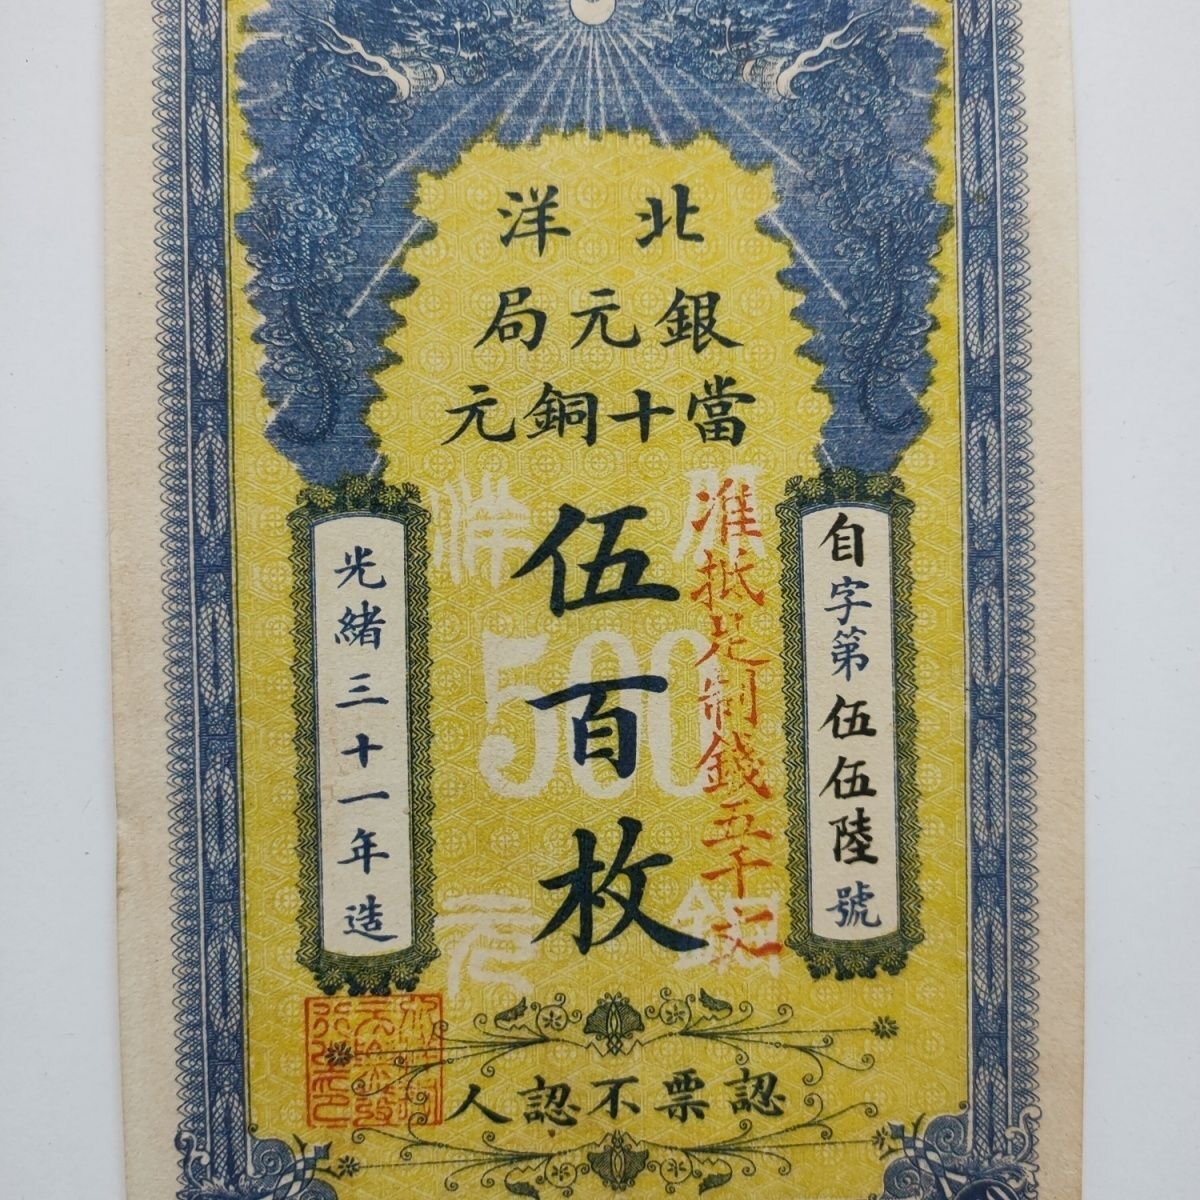 北洋
銀元局
當十銅元
伍百枚
准抵足制錢五千文
自字第伍伍陸號
光緒三十一年造
500
銀元
認票不認人